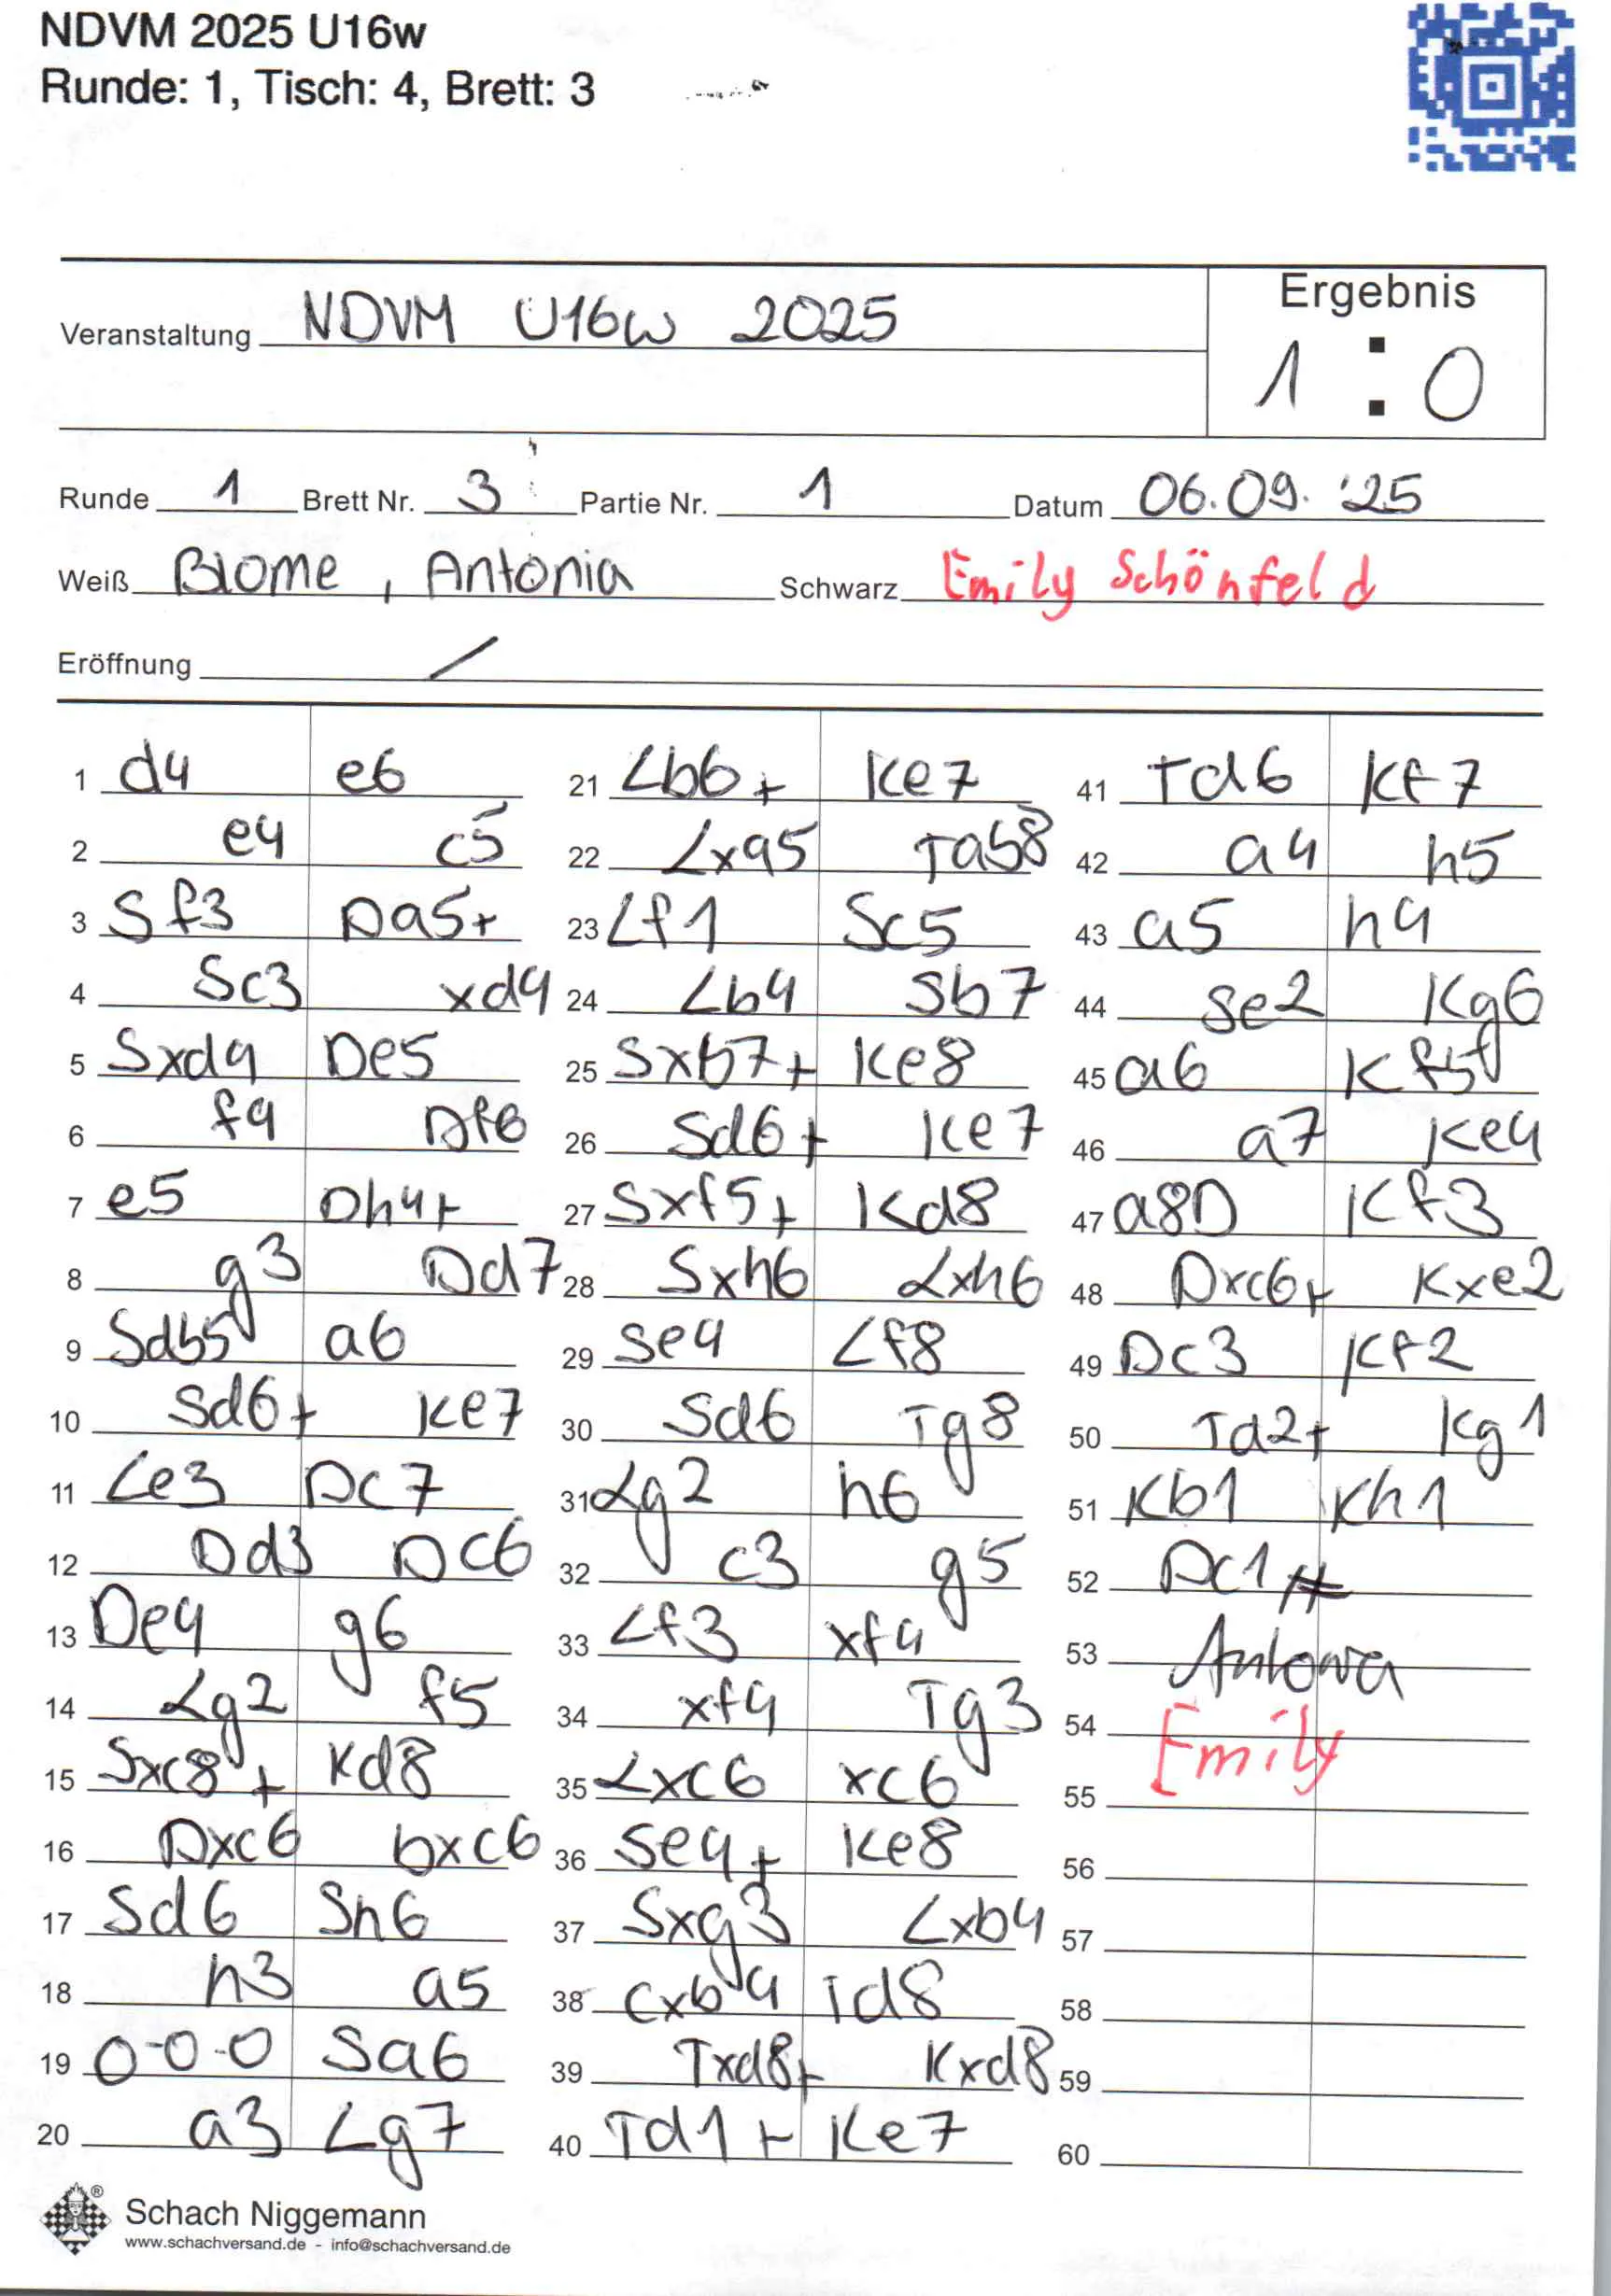 NDVM 2025 U16w
Runde: 1, Tisch: 4, Brett: 3
Ergebnis
Veranstaltung NDVM U16w 2025
1 : 0
Runde 1 Brett Nr. 3 Partie Nr. 1 Datum 06.09. '25
Weiß Blome, Antonia Schwarz Emily Schönfeld
Eröffnung /
1 d4 e6 21 Lb6+ Ke7 41 Td6 Kf7
2 e4 c5 22 Lxa5 Tab8 42 a4 h5
3 Sf3 Da5+ 23 Lf1 Sc5 43 a5 h4
4 Sc3 xd4 24 Lb4 Sb7 44 Se2 Kg6
5 Sxd4 De5 25 Sxb7+ Ke8 45 a6 Kf5
6 f4 Df6 26 Sd6+ Ke7 46 a7 Ke4
7 e5 Dh4+ 27 Sxf5+ Kd8 47 a8D Kf3
8 g3 Dd7 28 Sxh6 Lxh6 48 Dxc6+ Kxe2
9 Sdb5 a6 29 Se4 Lf8 49 Dc3 Kf2
10 Sd6+ Ke7 30 Sd6 Tg8 50 Td2+ Kg1
11 Le3 Dc7 31 Lg2 h6 51 Kb1 Kh1
12 Dd3 Dc6 32 c3 g5 52 Dc1#
13 De4 g6 33 Lf3 xf4 53 Antonia
14 Lg2 f5 34 xf4 Tg3 54 Emily
15 Sxc8+ Kd8 35 Lxc6 xc6 55
16 Dxc6 bxc6 36 Se4+ Ke8 56
17 Sd6 Sh6 37 Sxg3 Lxb4 57
18 h3 a5 38 cxb4 Td8 58
19 0-0-0 Sa6 39 Txd8+ Kxd8 59
20 a3 Lg7 40 Td1+ Ke7 60
®
Schach Niggemann
www.schachversand.de - info@schachversand.de